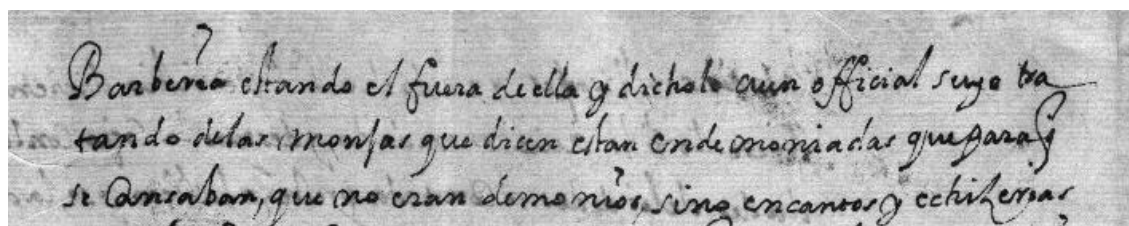 Barberia estando el fuera de ella y dicholo a un official suyo tra
tando de las monjas que dicen estan endemoniadas que para q
se cansaban, que no eran demonios, sino encantos y echiḻerias